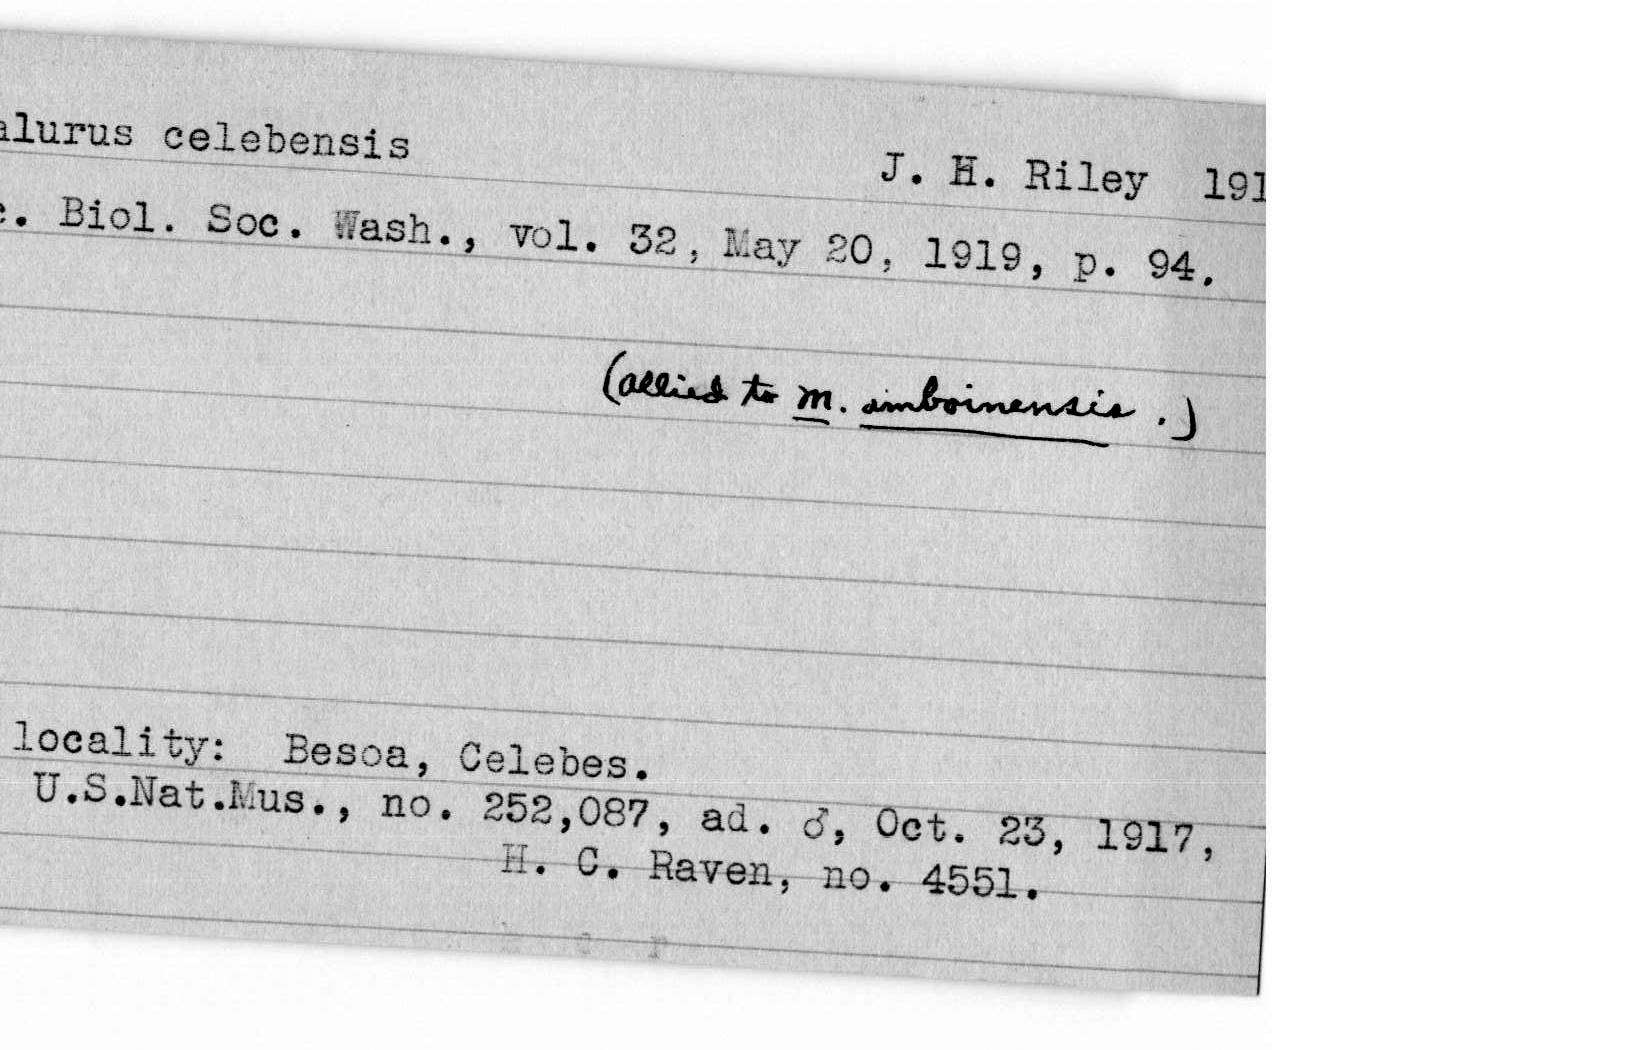 alurus celebensis J. H. Riley 191
c. Biol. Soc. Wash., vol. 32, May 20, 1919, p. 94.
(allied to m. amboinensis.)
locality: Besoa, Celebes.
U.S.Nat.Mus., no. 252,087, ad. ♂, Oct. 23, 1917,
H. C. Raven, no. 4551.